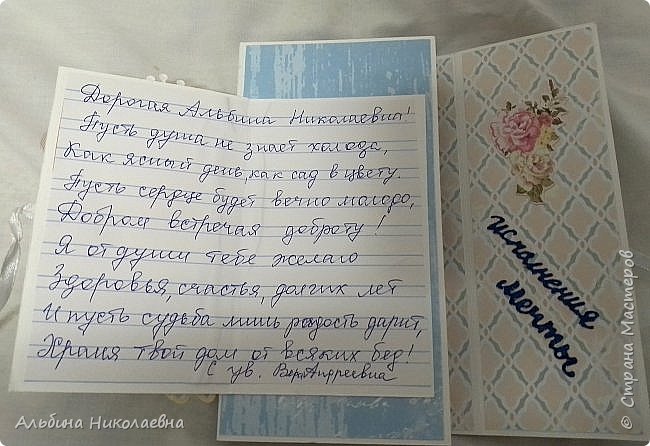 Дорогая Альбина Николаевна!
Пусть душа не знает холода,
Как ясный день, как сад в цвету.
Пусть сердце будет вечно молодо,
Добром встречая доброту!
Я от души тебе желаю
Здоровья, счастья, долгих лет
И пусть судьба лишь радость дарит,
Храня твой дом от всяких бед!
С ув. Вера Андреевна
исполнения
мечты
Альбина Николаевна
© Страна Мастеров